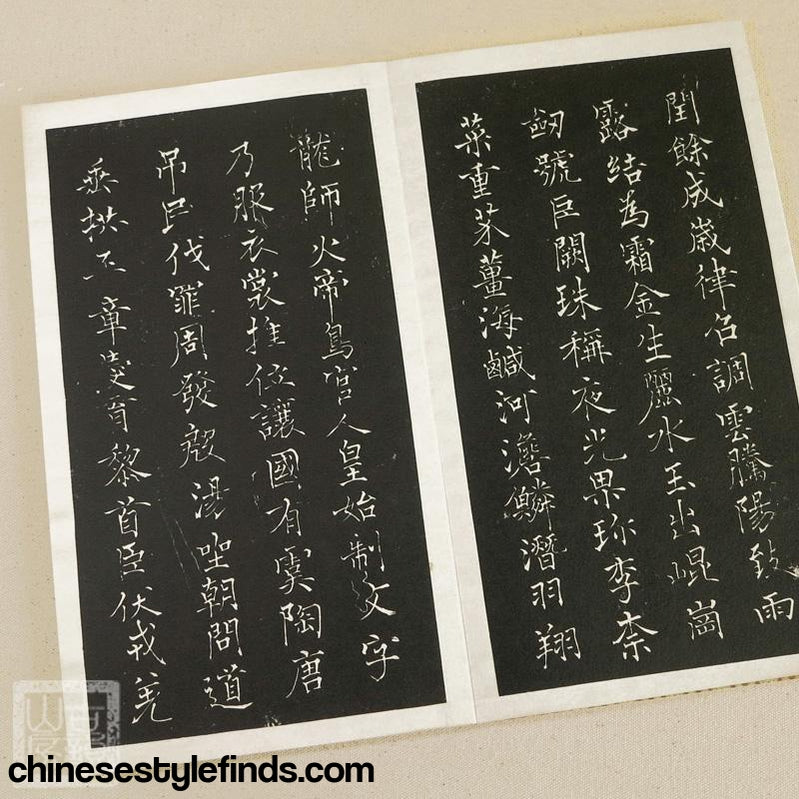 閏餘成歲律召調雲騰陽致雨
露結為霜金生麗水玉出崐崗
劒號巨闕珠稱夜光果珍李柰
菜重芥薑海鹹河澹鱗潛羽翔
龍師火帝鳥官人皇始制文字
乃服衣裳推位讓國有虞陶唐
吊民伐罪周發殷湯坐朝問道
垂拱平章愛育黎首臣伏戎羌
chinesestylefinds.com